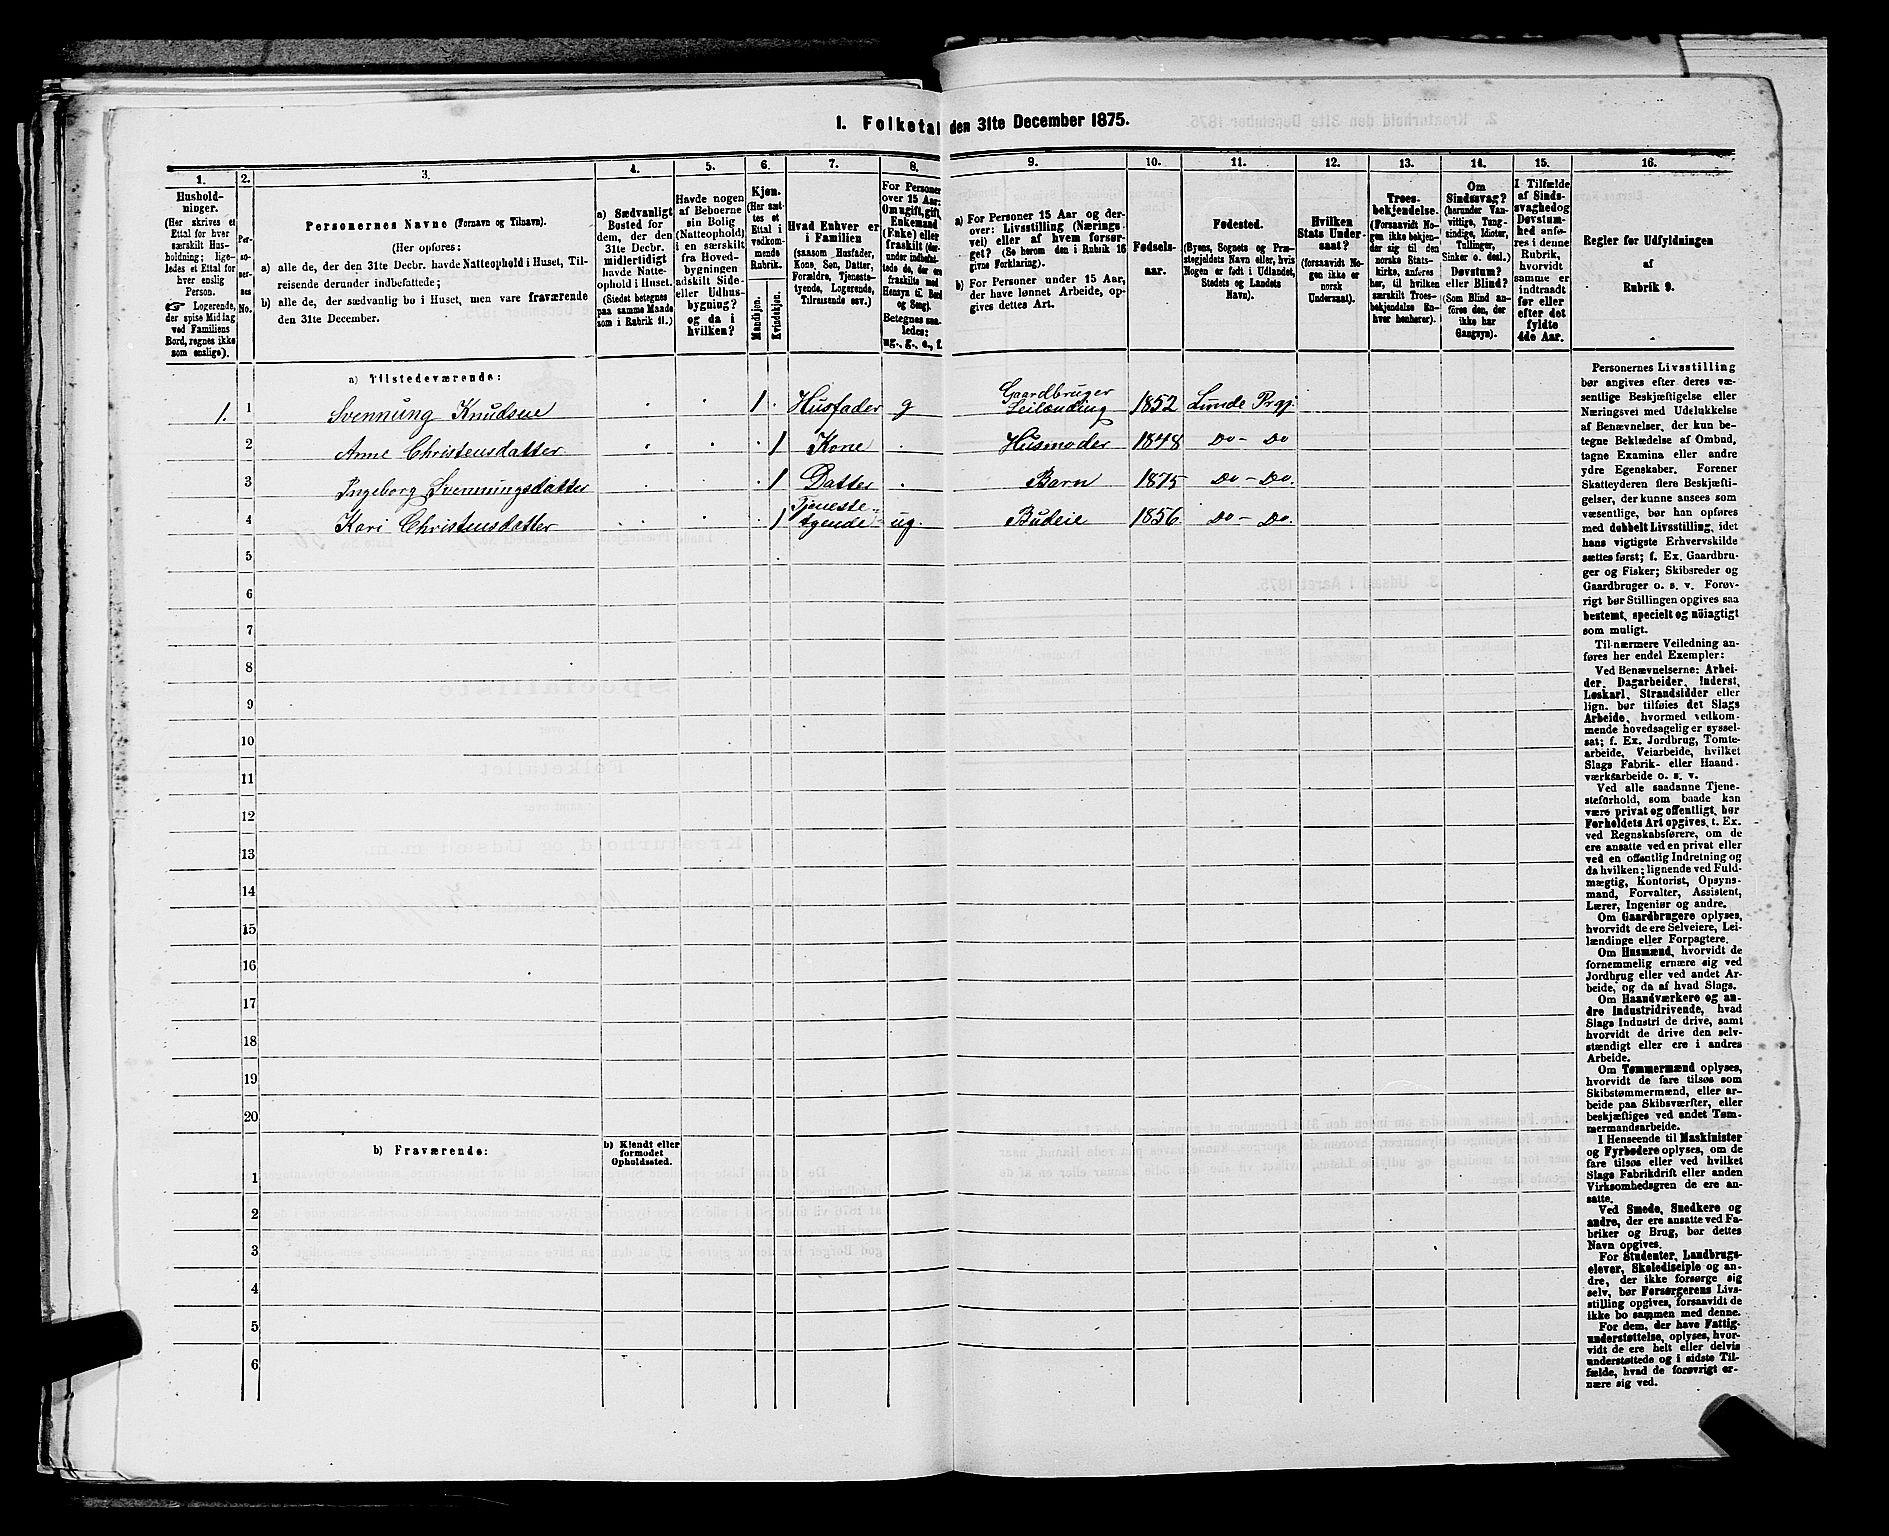 1. Folketal den 31te December 1875.
1. 2. 3. 4. 5. 6. 7. 8. 9. 10. 11. 12. 13. 14. 15. 16.
Hushold-
ninger.
(Her skrives et
Ettal for hver
særskilt Hus-
holdning; lige-
ledes et Ettal for
hver enslig
Person.
☞ Logerende,
der spise Middag
ved Familiens
Bord, regnes ikke
som enslige).
Per-
so-
ner-
nes
No.
Personernes Navne (Fornavn og Tilnavn).
(Her opføres:
a) alle de, der den 31te Decbr. havde Natteophold i Huset, Til-
reisende derunder indbefattede;
b) alle de, der sædvanlig bo i Huset, men vare fraværende
den 31te December.
a) Sædvanligt
Bosted for
dem, der den
31te Decbr.
midlertidigt
havde Natte-
ophold i Huset.
(Stedet betegnes
paa samme Maade
som i Rubrik 11.)
Havde nogen
af Beboerne
sin Bolig
(Natteophold)
i en særskilt
fra Hoved-
bygningen
adskilt Side-
eller Udhus-
bygning?
og da i
hvilken?
Kjøn.
(Her sæt-
tes et
Ettal i
vedkom-
mende
Rubrik.
Mandkjøn.
Kvindekjøn.
Hvad Enhver er
i Familien
(saasom Husfader,
Kone, Søn, Datter,
Forældre, Tjeneste-
tyende, Logerende,
Tilreisende osv.)
For Personer
over 15 Aar:
Om ugift, gift,
Enkemand
(Enke) eller
fraskilt (der-
under indbefat-
tede de, der ere
fraskilte med
Hensyn til Bord
og Seng).
Betegnes saa-
ledes:
ug., g., e., f.
a) For Personer 15 Aar og der-
over: Livsstilling (Nærings-
vei) eller af hvem forsør-
get? (Se herom den i Rubrik 16
givne Forklaring).
b) For Personer under 15 Aar,
der have lønnet Arbeide, op-
gives dettes Art.
Fødsels-
aar.
Fødested.
(Byens, Sognets og Præ-
stegjeldets Navn eller, hvis
Nogen er født i Udlandet,
Stedets og Landets
Navn).
Hvilken
Stats Under-
saat?
(forsaavidt No-
gen ikke er
norsk
Undersaat).
Troes-
bekjendelse.
(Forsaavidt No-
gen ikke bekjen-
der sig til den
norske Stats-
kirke, anføres
her, til hvilken
særskilt Troes-
bekjendelse En-
hver henhører).
Om
Sindssvag?
(herunder Van-
vittige, Tung-
sindige, Idioter,
Tullinger,
Sinker o. desl.)
Døvstum?
eller Blind?
(Som Blind an-
føres den, der
ikke har
Gangsyn).
I Tilfælde
af Sinds-
svaghed og
Døvstum-
hed anfø-
res i denne
Rubrik,
hvorvidt
samme er
indtraadt
før eller
efter det
fyldte
4de Aar.
Regler for Udfyldningen
af
Rubrik 9.
a) Tilstedeværende:
1. 1 Svennung Knudsen 1 Husfader g Gaardbruger
Leilænding 1852 Lunde Prgj.
2 Anne Christensdatter 1 Kone Husmoder 1848 Do - Do
3 Ingeborg Svennungsdatter 1 Datter Barn 1875 Do - Do.
4 Kari Christensdatter 1 Tjeneste-
tyende ug. Budeie 1856 Do - Do.
5
6
7
8
9
10
11
12
13
14
15
16
17
18
19
20
b) Fraværende:
b) Kjendt eller
formodet
Opholdssted.
1
2
3
4
5
6
Personernes Livsstilling
bør angives efter deres væ-
sentlige Beskjæftigelse eller
Næringsvei med Udelukkelse
af Benævnelser, der kun be-
tegne Beklædelse af Ombud,
tagne Examina eller andre
ydre Egenskaber. Forener
Skatteyderen flere Beskjæfti-
gelser, der kunne ansees som
væsentlige, bør han opføres
med dobbelt Livsstilling, idet
hans vigtigste Erhvervskilde
sættes først; f. Ex. Gaardbru-
ger og Fisker; Skibsreder og
Gaardbruger o. s. v. Forøv-
rigt bør Stillingen opgives saa
bestemt, specielt og nöiagtigt
som muligt.
Til nærmere Veiledning an-
føres her endel Exempler:
Ved Benævnelserne: Arbei-
der, Dagarbeider, Inderst,
Løskarl, Strandsidder eller
lign. bør tilføies det Slags
Arbeide, hvormed vedkom-
mende hovedsagelig er syssel-
sat; f. Ex. Jordbrug, Tomte-
arbeide, Veiarbeide, hvilket
Slags Fabrik- eller Haand-
værksarbeide o. s. v.
Ved alle saadanne Tjene-
steforhold, som baade kan
være privat og offentligt, bør
Forholdets Art opgives, t. Ex.
ved Regnskabsførere, om de
ere ansatte ved en privat eller
ved en offentlig Indretning og
da hvilken; lignende ved Fuld-
mægtig, Kontorist, Opsyns-
mand, Forvalter, Assistent,
Lærer, Ingeniør og andre.
Om Gaardbrugere oplyses,
hvorvidt de ere Selveiere, Lei-
lændinge eller Forpagtere.
Om Husmænd, hvorvidt de
fornemmelig ernære sig ved
Jordbrug eller ved andet Ar-
beide, og da af hvad Slags.
Om Haandværkere og an-
dre Industridrivende, hvad
Slags Industri de drive, samt
hvorvidt de drive den selv-
stændigt eller ere i andres
Arbeide.
Om Tømmermænd oplyses,
hvorvidt de fare tilsøs som
Skibstømmermænd, eller ar-
beide paa Skibsværfter, eller
beskjæftiges ved andet Tøm-
mermandsarbeide.
I Henseende til Maskinister
og Fyrbødere oplyses, om de
fare tilsøs eller ved hvilket
Slags Fabrikdrift eller anden
Virksomhedsgren de ere an-
satte.
Ved Smede, Snedkere og
andre, der ere ansatte ved Fa-
briker og Brug, bør dettes
Navn opgives.
For Studenter, Landbrugs-
elever, Skoledisciple og an-
dre, der ikke forsørge sig
selv, bør Forsørgerens Livs-
stilling opgives, forsaavidt de
ikke bo sammen med denne.
For dem, der have Fattig-
understøttelse, oplyses, hvor-
vidt de ere helt eller delvis
understøttede og i sidste Til-
fælde, hvad de forøvrigt er-
nære sig ved.